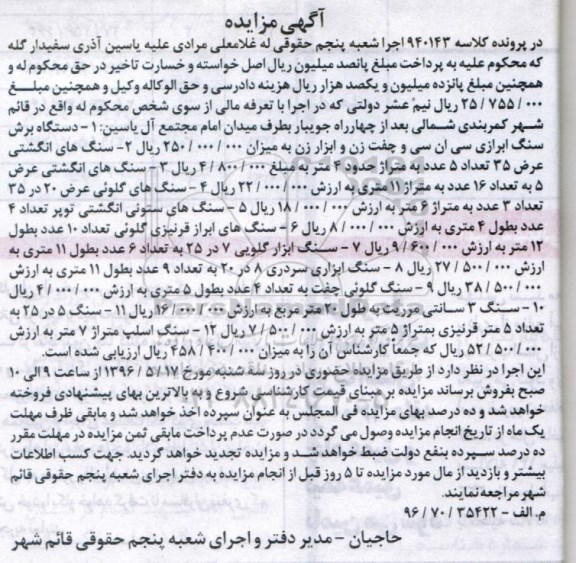 آگهی مزایده
در پرونده کلاسه ۹۴۰۱۴۳ اجرا شعبه پنجم حقوقی له غلامعلی مرادی علیه یاسین آذری سفیدار گله
که محکوم علیه به پرداخت مبلغ پانصد میلیون ریال اصل خواسته و خسارت تاخیر در حق محکوم له و
همچنین مبلغ پانزده میلیون و یکصد هزار ریال هزینه دادرسی و حق الوکاله وکیل و همچنین مبلغ
۲۵/۷۵۵/۰۰۰ ریال نیم عشر دولتی که در اجرا با تعرفه مالی از سوی شخص محکوم له واقع در قائم
شهر کمربندی شمالی بعد از چهارراه جویبار بطرف میدان امام مجتمع آل یاسین: ۱- دستگاه برش
سنگ ابرازی سی ان سی و چفت زن و ابزار زن به میزان ۲۵۰/۰۰۰/۰۰۰ ریال ۲- سنگ های انگشتی
عرض ۳۵ تعداد ۵ عدد به متراژ حدود ۲ متر به مبلغ ۴/۸۰۰/۰۰۰ ریال ۳- سنگ های انگشتی عرض
۵ به تعداد ۱۶ عدد به متراژ ۱۱ متری به ارزش ۲۲/۰۰۰/۰۰۰ ریال ۴- سنگ های گلوئی عرض ۲۰ در ۳۵
تعداد ۳ عدد به متراژ ۶ متر به ارزش ۱۸/۰۰۰/۰۰۰ ریال ۵- سنگ های ستونی انگشتی توپر تعداد ۴
عدد بطول ۴ متری به ارزش ۸/۰۰۰/۰۰۰ ریال ۶- سنگ های ابراز قرنیزی گلوئی تعداد ۱۰ عدد بطول
۱۲ متر به ارزش ۹/۶۰۰/۰۰۰ ریال ۷- سنگ ابزار گلویی ۷ در ۲۵ به تعداد ۶ عدد بطول ۱۱ متری به
ارزش ۲۷/۵۰۰/۰۰۰ ریال ۸- سنگ ابزاری سردری ۸ در ۲۰ به تعداد ۹ عدد بطول ۱۱ متری به ارزش
۳۸/۵۰۰/۰۰۰ ریال ۹- سنگ گلوئی چفت به تعداد ۴ عدد بطول ۵ متری به ارزش ۴/۰۰۰/۰۰۰ ریال
۱۰- سنگ ۳ سانتی مرریت به طول ۲۰ متر مربع به ارزش ۱۶/۰۰۰/۰۰۰ ریال ۱۱- سنگ ۵ در ۲۵ به
تعداد ۵ متر قرنیزی بمتراژ ۵ متر به ارزش ۷/۵۰۰/۰۰۰ ریال ۱۲- سنگ اسلب متراژ ۷ متر به ارزش
۵۲/۵۰۰/۰۰۰ ریال که جمعا کارشناس آن را به میزان ۴۵۸/۴۰۰/۰۰۰ ریال ارزیابی شده است.
این اجرا در نظر دارد از طریق مزایده حضوری در روز سه شنبه مورخ ۱۳۹۶/۵/۱۷ از ساعت ۹ الی ۱۰
صبح بفروش برساند مزایده بر مبنای قیمت کارشناسی شروع و به بالاترین بهای پیشنهادی فروخته
خواهد شد و ده درصد بهای مزایده فی المجلس به عنوان سپرده اخذ خواهد شد و مابقی ظرف مهلت
یک ماه از تاریخ انجام مزایده وصول می گردد در صورت عدم پرداخت مابقی ثمن مزایده در مهلت مقرر
ده درصد سپرده بنفع دولت ضبط خواهد شد و مزایده تجدید خواهد گردید. جهت کسب اطلاعات
بیشتر و بازدید از مال مورد مزایده تا ۵ روز قبل از انجام مزایده به دفتر اجرای شعبه پنجم حقوقی قائم
شهر مراجعه نمایند.
م. الف - ۹۶/۷۰/۳۵۴۲۲
حاجیان - مدیر دفتر و اجرای شعبه پنجم حقوقی قائم شهر